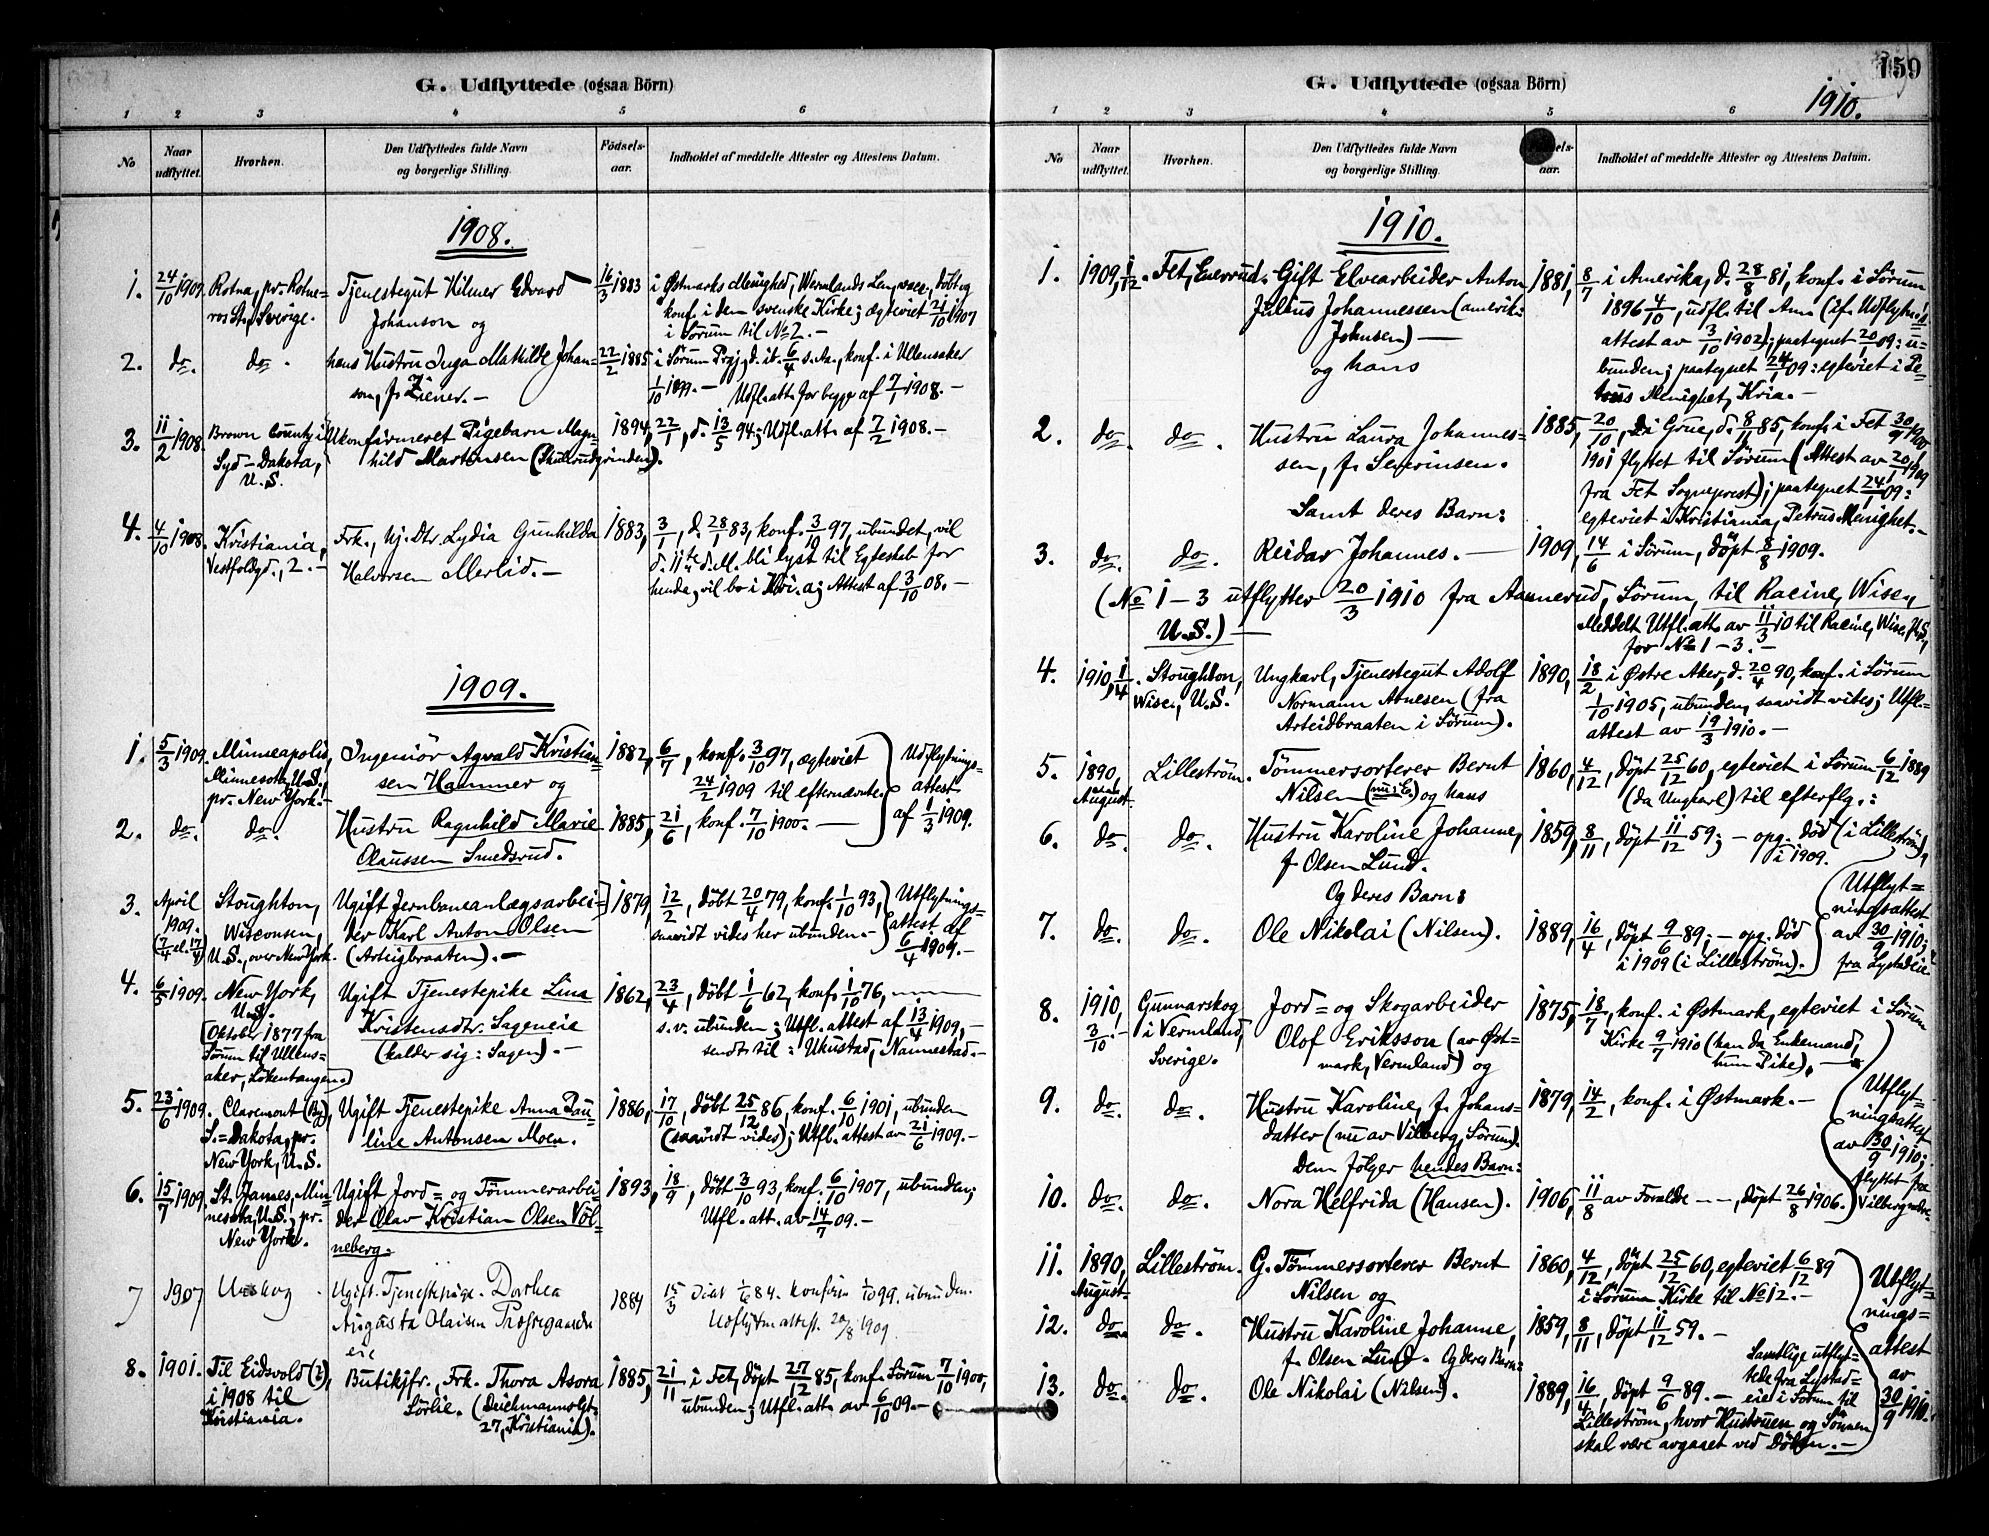 G. Udflyttede (ogsaa Börn)
1 2 3 4 5 6
No
Naar udflyttet.
Hvorhen.
Den Udflyttedes fulde Navn
og borgerlige Stilling.
Födsels-
aar.
Indholdet af meddelte Attester og Attestens Datum.
1908.
1. 24/10 1907. Rotna, pr. Rotne- Tjenestegut Hilmer Edvard 16/3 1883 i Østmarks Menighed, Wermlands Len, döbt og
ros St., Sverige. Johanson og konf. i den svenske Kirke; egteviet 21/10 1907
i Sørum til No 2. –
2. do. do. hans Hustru Inga Mathilde Johan- 22/2 1885 i Sørum Prgj., d. ib. 6/4 s. Aa., konf. i Ullensaker
son, f. Ziener. – 1/10 1899. – Udfl.att. for begge af 7/1 1908. –
3. 11/2 1908. Brown County i Ukonfirmeret Pigebarn Magn- 1894, 22/1, d. 13/5 94; Udfl.att. af 7/2 1908. –
Syd-Dakota, hild Martinsen (Skulrudgrinden).
U.S.
4. 4/10 1908. Kristiania, Frk., Hj. Dtr. Lydia Gunhilda 1883, 3/1, d. 28/1 83, konf. 3/10 97, ubundet, vil
Vestfoldgd., 2. – Halvorsen Merlid. – d. 11te d. M. bli lyst til Egteskab for
hende, vil bo i Kri.a; Attest af 3/10 08. –
1909.
1. 5/3 1909. Minneapolis, Ingeniör Agvald Kristian- 1882, 6/7, konf. 3/10 97, egteviet Udflytnings-
Minnesota, U.S., sen Hammer og 24/2 1909 til efternævnte. attest
pr. New York. – af 1/3 1909.
2. do. do. Hustru Ragnhild Marie 1885, 21/6, konf. 7/10 1900. –
Olaussen Smedsrud.
3. April Stoughton, Ugift Jernbaneanlægsarbei- 1879, 12/2, döbt 20/4 79, konf. 1/10 93, Utflytnings-
1909. Wisconsin, der Karl Anton Olsen saavidt vides her ubunden. – attest af
(7/4 el. 17/4) U.S., over New York. (Arteigbraaten). – 6/4 1909. –
4. 6/5 1909. New York, Ugift Tjenestepike Lina 1862, 23/4, döbt 1/6 62, konf. 1/10 76,
U.S. Kristensdtr. Sageneie s.v. ubunden; Utfl.attest af 13/4 1909, –
(Oktober 1877 fra (kalder sig: Sagen). – sendt til: Ukustad, Nannestad. –
Sørum til Ullens-
aker, Lökentangen.)
5. 23/6 1909. Claremont (By), Ugift Tjenestepike Anna Pau- 1886, 17/10, döbt 25/12 86, konf. 6/10 1901, ubunden
S.=Dakota, pr. line Antonsen Moen. (saavidt vides); Utfl.attest av 21/6 1909. –
New York, U.S.
6. 15/7 1909. St. James, Min- Ugift Jord= og Tömmerarbei- 1893, 18/9, döbt 3/10 93, konf. 6/10 1907, ubunden;
nesota, U.S., pr. der Olav Kristian Olsen Völ- Utfl.att. av 14/7 09. –
New York. neberg.
7 1907 Urskog Ugift Tjenestepige Dorthea 1884 15/3 Döbt 1/6 84. Konfirm 1/10 99. ubunden.
Augusta Olaisen Prestegaards- Udflytn.attest. 20/8 1909.
eie
8. 1901. Til Eidsvold (?), Butikjfr., Frk. Thora Asora 1885, 21/11 i Fet, döpt 27/12 85, konf. Sørum 7/10 1900,
i 1908 til Sörlie. (Deichmannsgt. ubunden; Utfl.att. av 6/10 09. –
Kristiania. 27, Kristiania).
159
G. Udflyttede (ogsaa Börn)
1910.
1 2 3 4 5 6
No
Naar udflyttet.
Hvorhen.
Den Udflyttedes fulde Navn
og borgerlige Stilling.
els-
aar.
Indholdet af meddelte Attester og Attestens Datum.
1910.
1. 1909, 1/12. Fet, Enerrud. Gift Elvearbeider Anton 1881, 8/7 i Amerika, d. 28/8 81, konf. i Sørum
Julius Johannessen (amerik: 1896 4/10, udfl. til Am. (jf. Udflytn.s
Johnsen) – attest av 3/10 1902); paategnet 20/1 09: u-
og hans bunden; paategnet 24/1 09: egteviet i Pe-
trus Menighet, Kria. –
2. do. do. Hustru Laura Johannes- 1885, 20/10, i Grue, d. 8/11 85, konf. i Fet 30/9 1900,
sen, f. Severinsen. 1901 flyttet til Sørum (Attest av 20/1 1909
fra Fet Sogneprest); paategnet 24/1 09:
Samt deres Barn: egteviet i Kristiania, Petrus Menighet. –
3. do. do. Reidar Johannes. – 1909, 14/6 i Sørum, döpt 8/8 1909.
(No 1 – 3 utflytter 20/3 1910 fra Aanerud, Sørum, til Racine, Wisc.,
U.S.) – Meddelt Utfl.att. av 11/3 10 til Racine, Wisc., U.S.,
for No 1 – 3. –
4. 1910, 1/4. Stoughton, Ungkarl, Tjenestegut Adolf 1890, 18/2 i Østre Aker, d. 20/4 90, konf. i Sørum
Wisc., U.S. Normann Arnesen (fra 1/10 1905, ubunden, saavidt vites; Utfl.-
Arteidbraaten i Sørum). attest av 19/3 1910. –
5. 1890, Lilleström. Tömmersorterer Bernt 1860, 4/12, döpt 25/12 60, egteviet i Sørum 6/12 1889
August. Nilsen og hans (da Ungkarl) til efterflg.:
6. do. do. Hustru Karoline Johanne, 1859, 8/11, döpt 11/12 59; – opg. död (i Lilleström)
f. Olsen Lund. i 1909.
Og deres Barn: Utflyt=
ningsattest
7. do. do. Ole Nikolai (Nilsen). 1889, 16/4, döpt 9/6 89; – opg. död av 30/9 1910;
i 1909 (i Lilleström). fra Lystadeie
8. 1910, Gunnarskog Jord= og Skogarbeider 1875, 18/7, konf. i Østmark, egteviet i Sørum
3/10. – i Vermland, Olof Eriksson (av Øst= Kirke 9/7 1910 (han da Enkemand,
Sverige. mark, Vermland) og hun Pike), –
9. do. do. Hustru Karoline, f. Johans- 1879, 14/2, konf. i Østmark. – Utflyt-
datter (nu av Vilberg, Sørum). ningsattest
Dem følger hendes Barn: av 30/9 1910;
10. do. do. Nora Helfrida (Hansen). 1906, 11/8 av Foralde – –, döpt 26/8 1906. flyttet fra
Vilberg
11. 1890, Lilleström. G. Tömmersorterer Bernt 1860, 4/12, döpt 25/12 60, egteviet 6/12 89
August. Nilsen og i Sörum Kirke til No 12. – Utflyt-
nings-
12. do. do. Hustru Karoline Johanne, 1859, 8/11, döpt 11/12 59. – attest
f. Olsen Lund. Og deres Barn: Samtlige utflyt- av
13. do. do. Ole Nikolai (Nilsen). 1889, 16/4, döpt 9/6 89. – tede fra Lystad- 30/9 1910.
eie i Sörum til
Lilleström, hvor Hustruen og Sönnen
skal være avgaaet ved Döden. –